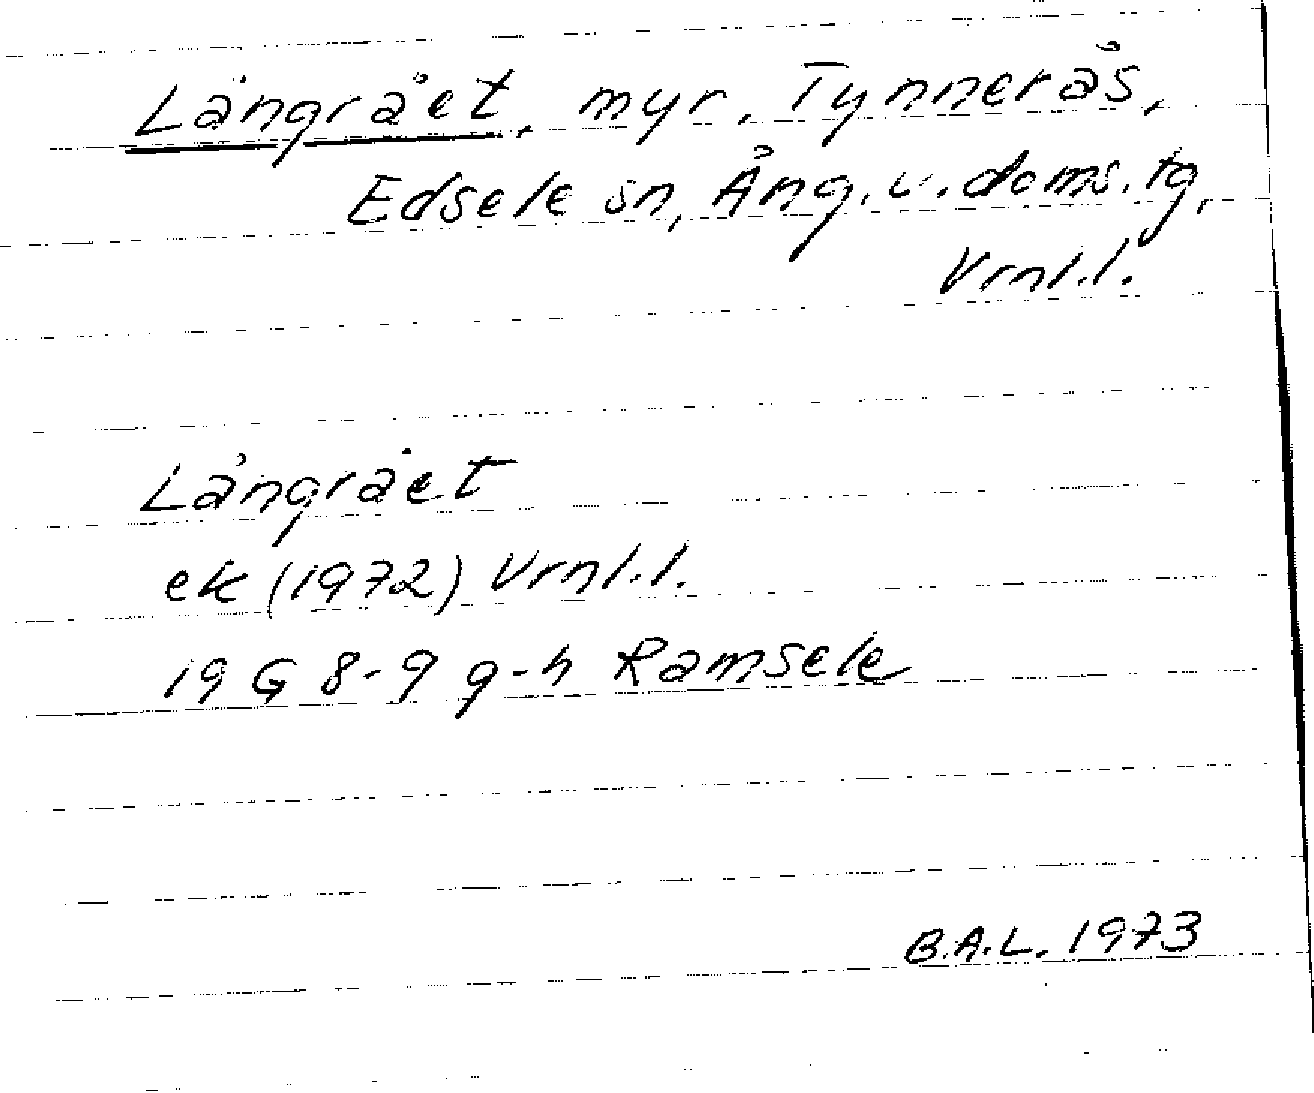 Långrået, myr, Tynnerås,
Edsele sn, Ång. v. doms. tg,
Vrnl.l.
Långrået
ek (1972) Vrnl.l.
19 G 8-9 g-h Ramsele
B.A.L. 1973